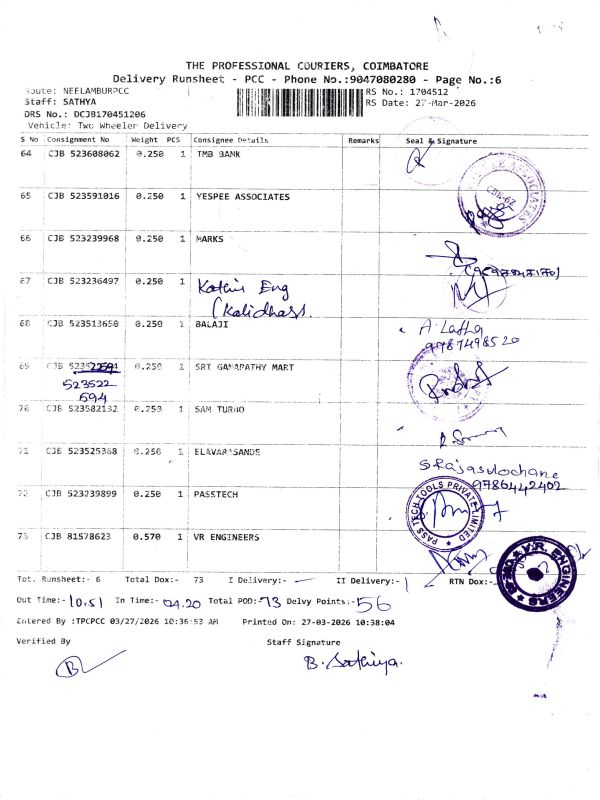 THE PROFESSIONAL COURIERS, COIMBATORE
Delivery Runsheet - PCC - Phone No.:9047080280 - Page No.:6
Route: NEELAMBURPCC RS No.: 1704512
Staff: SATHYA RS Date: 27-Mar-2026
DRS No.: DCJB170451206
Vehicle: Two Wheeler Delivery
S No Consignment No Weight PCS Consignee Details Remarks Seal & Signature
64 CJB 523608062 0.250 1 TMB BANK
65 CJB 523591016 0.250 1 YESPEE ASSOCIATES
66 CJB 523239968 0.250 1 MARKS
67 CJB 523236497 0.250 1 Kathir Eng
(Kalidhass.
68 CJB 523513650 0.250 1 BALAJI A. Latha
9787498520
69 CJB 1 SRI GANAPATHY MART
523522
594
70 CJB 523582132 0.250 1 SAM TURBO
71 CJB 523525368 0.250 1 S Rajasulochana
9786442402
72 CJB 523239899 0.250 1 PASSTECH
PASS TECH TOOLS PRIVATE LIMITED
73 CJB 81578623 0.570 1 VR ENGINEERS
V.R. ENGINEERS
Tot. Runsheet:- 6 Total Dox:- 73 I Delivery:- II Delivery:- 1 RTN Dox:-
Out Time:- 10.51 In Time:- 04.20 Total POD:- 73 Delvy Points:- 56
Entered By :TPCPCC 03/27/2026 10:36:53 AM Printed On: 27-03-2026 10:38:04
Verified By Staff Signature
B. Sathiya.